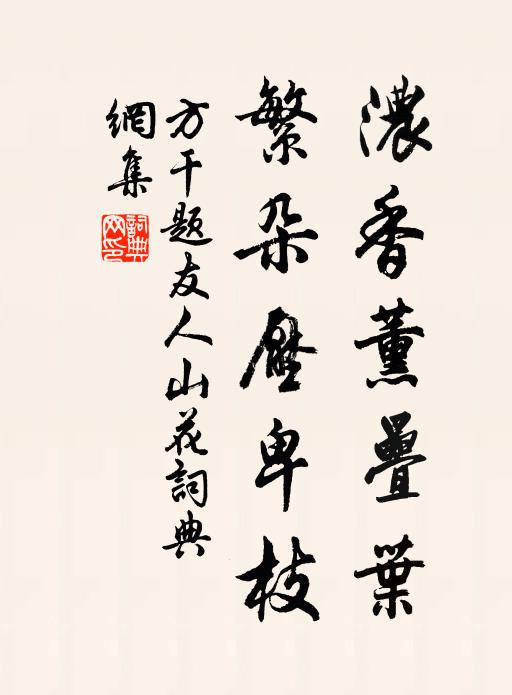 濃香薰疊葉
繁朵壓卑枝
方干題友人山花詞典
網集
詞典
網印